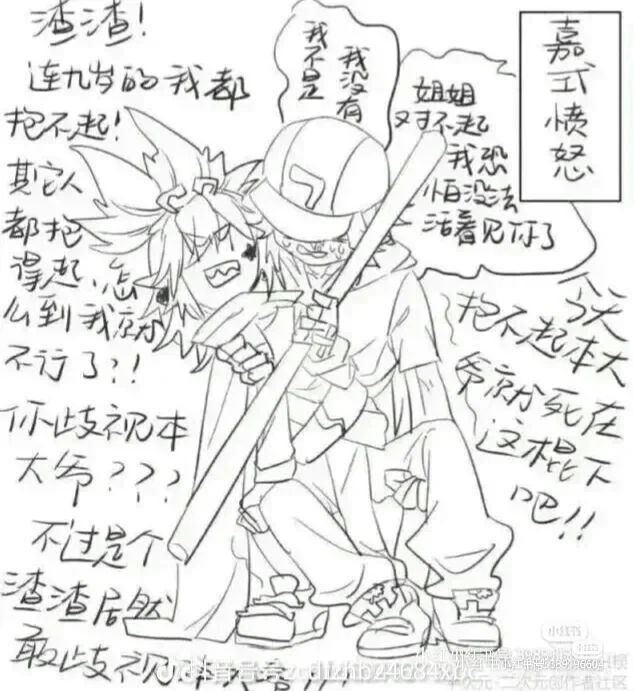 嘉式愤怒
渣渣！
连九岁的我都
抱不起！
其它人
都抱
得起，怎
么到我就
不行了？！！
你歧视本
大爷？？？
不过是个
渣渣居然
敢歧视本大爷！！！
我没有
我不是
姐姐
对不起
我恐
怕没法
活着见你了
今天
抱不起本大
爷就死在
这棍下
吧！！
小红书